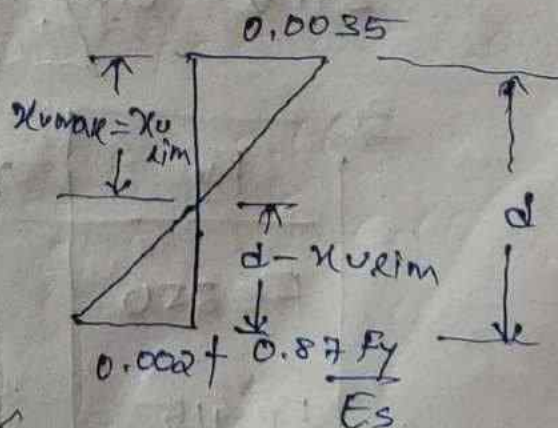 0.0035
xumax = xu lim
d
d - xulim
0.002 + 0.87 Fy
Es